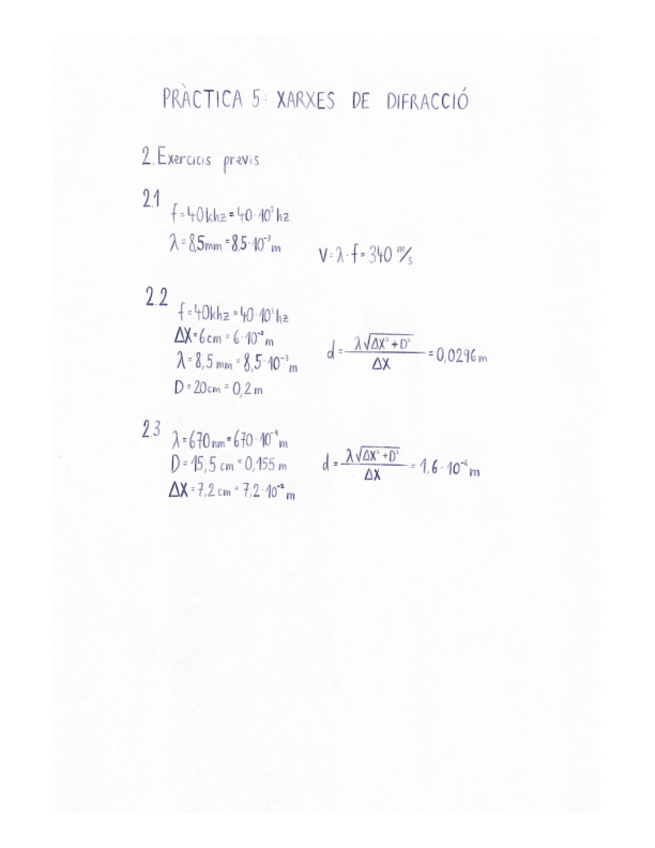 PRÀCTICA 5: XARXES DE DIFRACCIÓ
2. Exercicis previs
2.1
f = 40 khz = 40·10³ hz
λ = 8,5mm = 8,5·10⁻³ m
V = λ·f = 340 m/s
2.2
f = 40khz = 40·10³ hz
ΔX = 6cm = 6·10⁻² m
λ = 8,5 mm = 8,5·10⁻³ m
D = 20cm = 0,2 m
d = λ√(ΔX² + D²) / ΔX = 0,0296 m
2.3
λ = 670 nm = 670·10⁻⁹ m
D = 15,5 cm = 0,155 m
ΔX = 7,2 cm = 7,2·10⁻² m
d = λ√(ΔX² + D²) / ΔX = 1,6·10⁻⁶ m